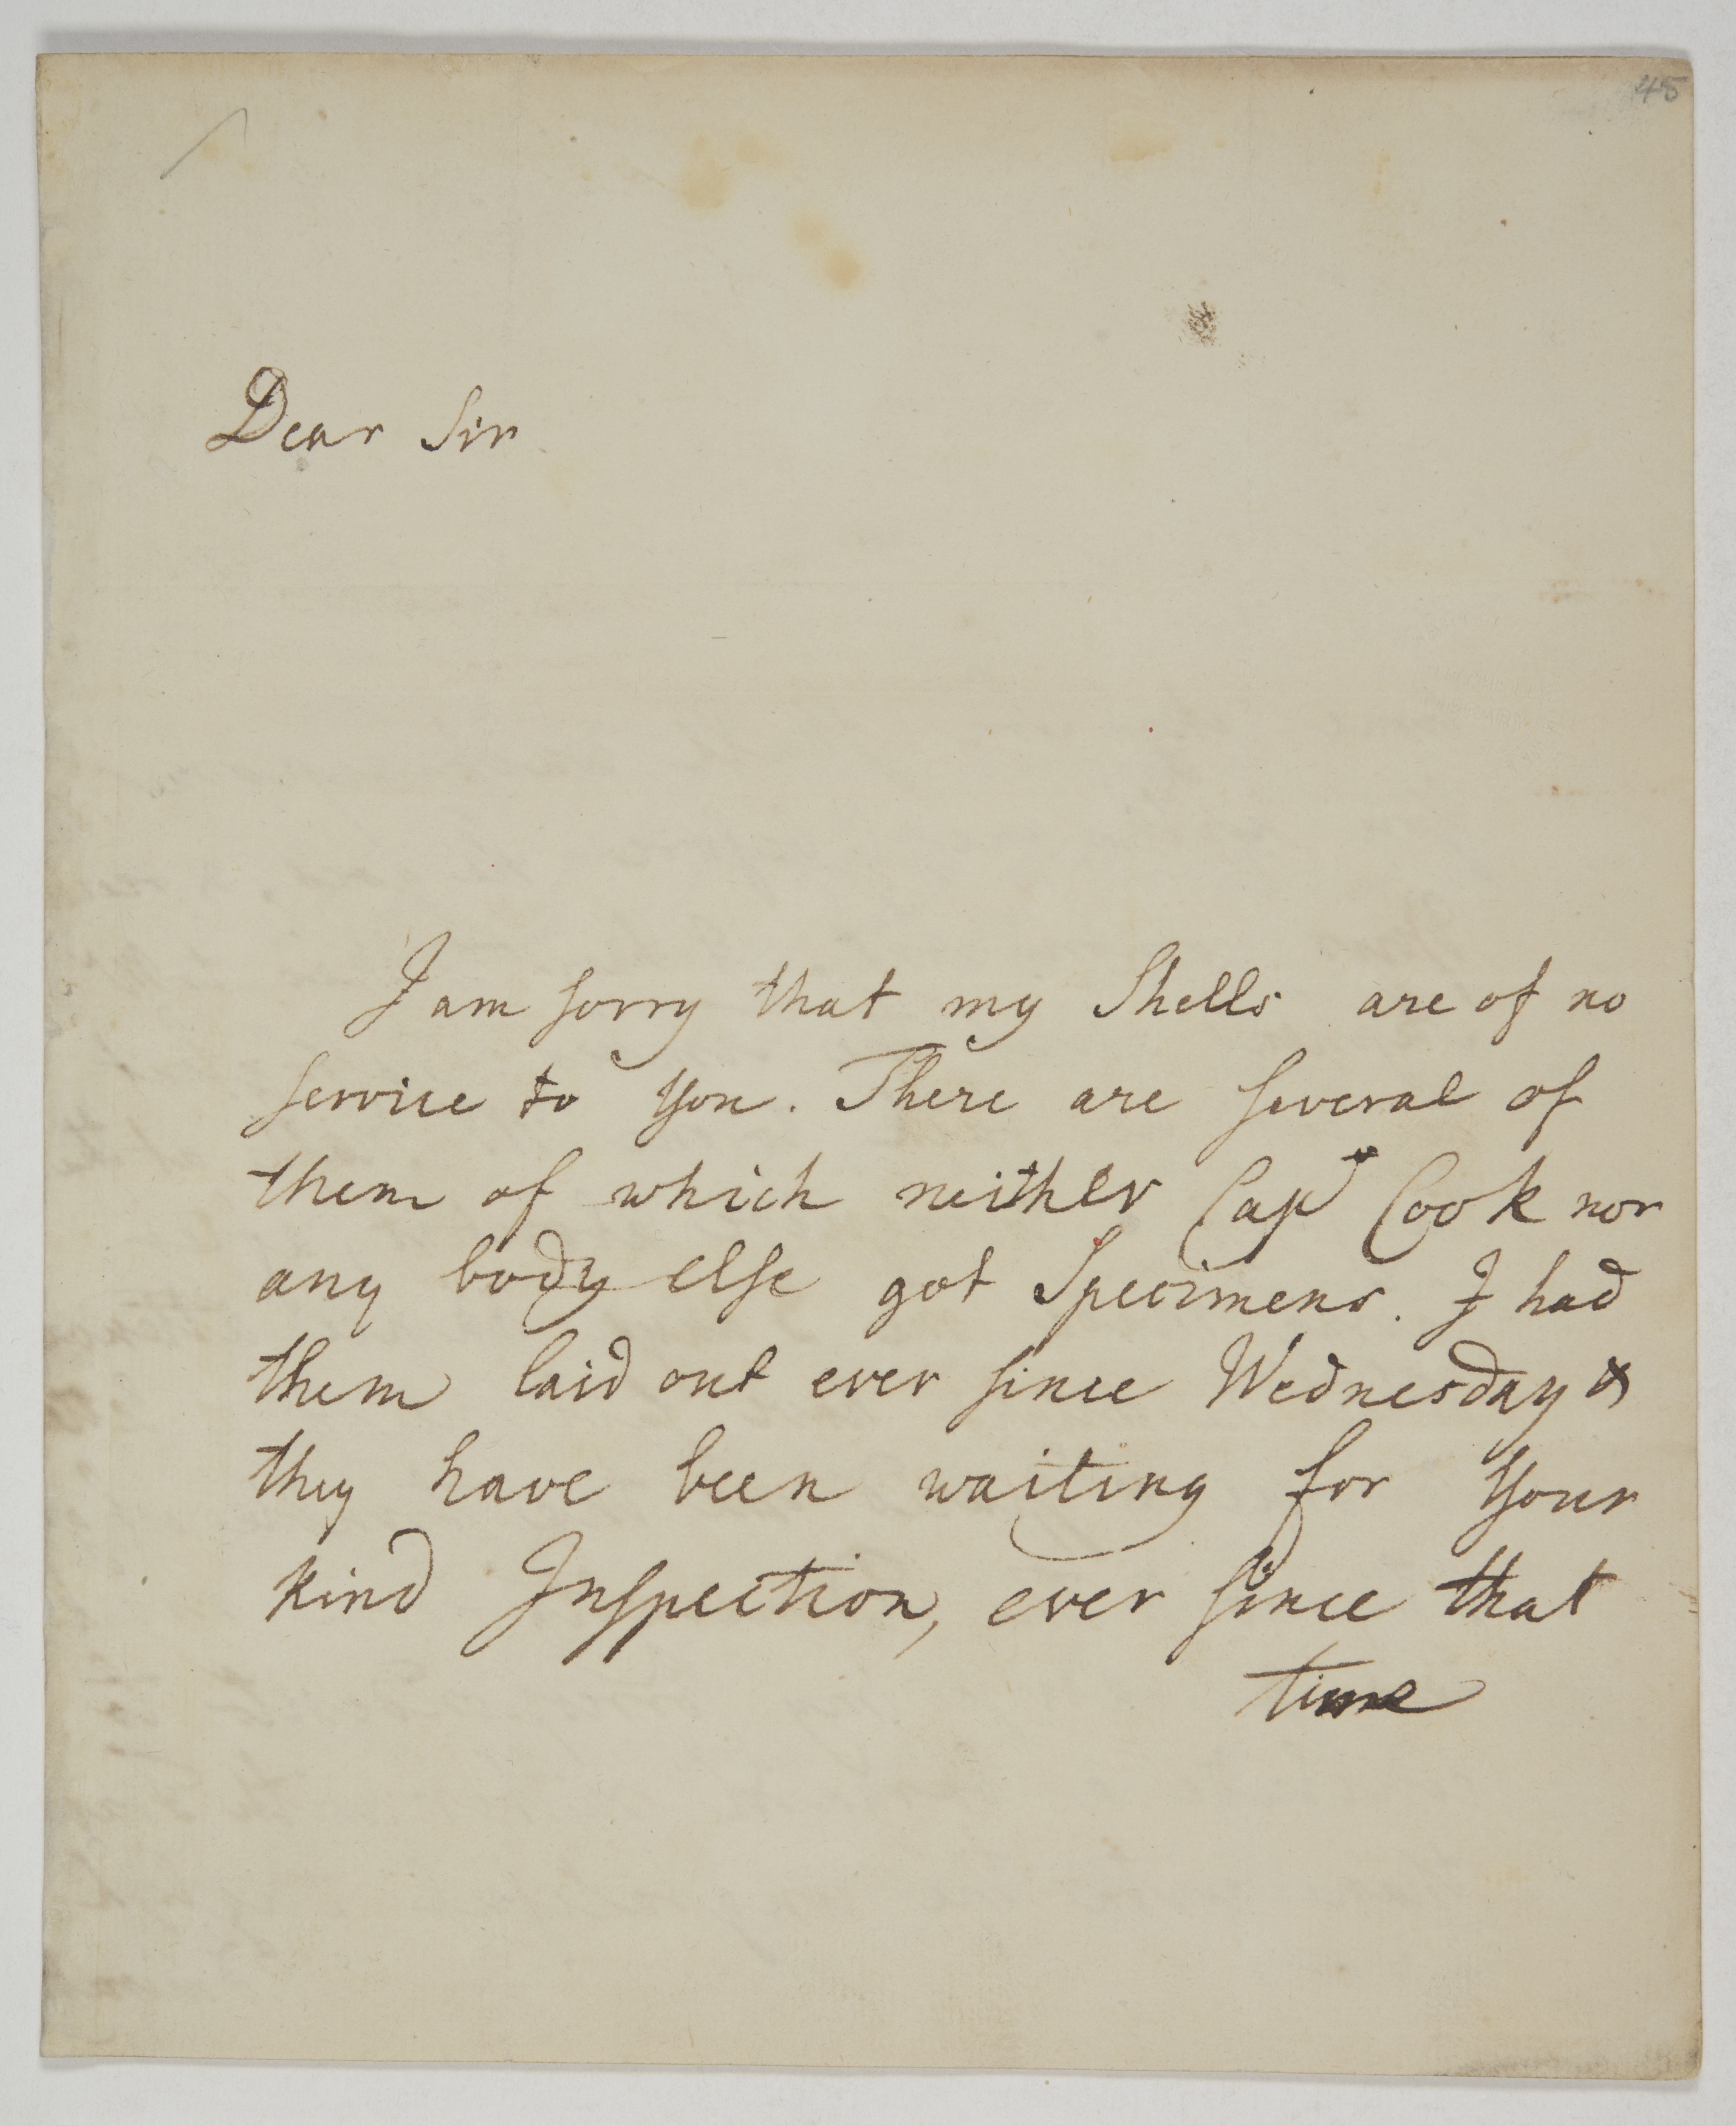 45
Dear Sir
I am sorry that my Shells are of no
service to you. There are several of
them of which neither Capt Cook nor
any body else got Specimens. I had
them laid out ever since Wednesday &
they have been waiting for your
kind Inspection, ever since that
time